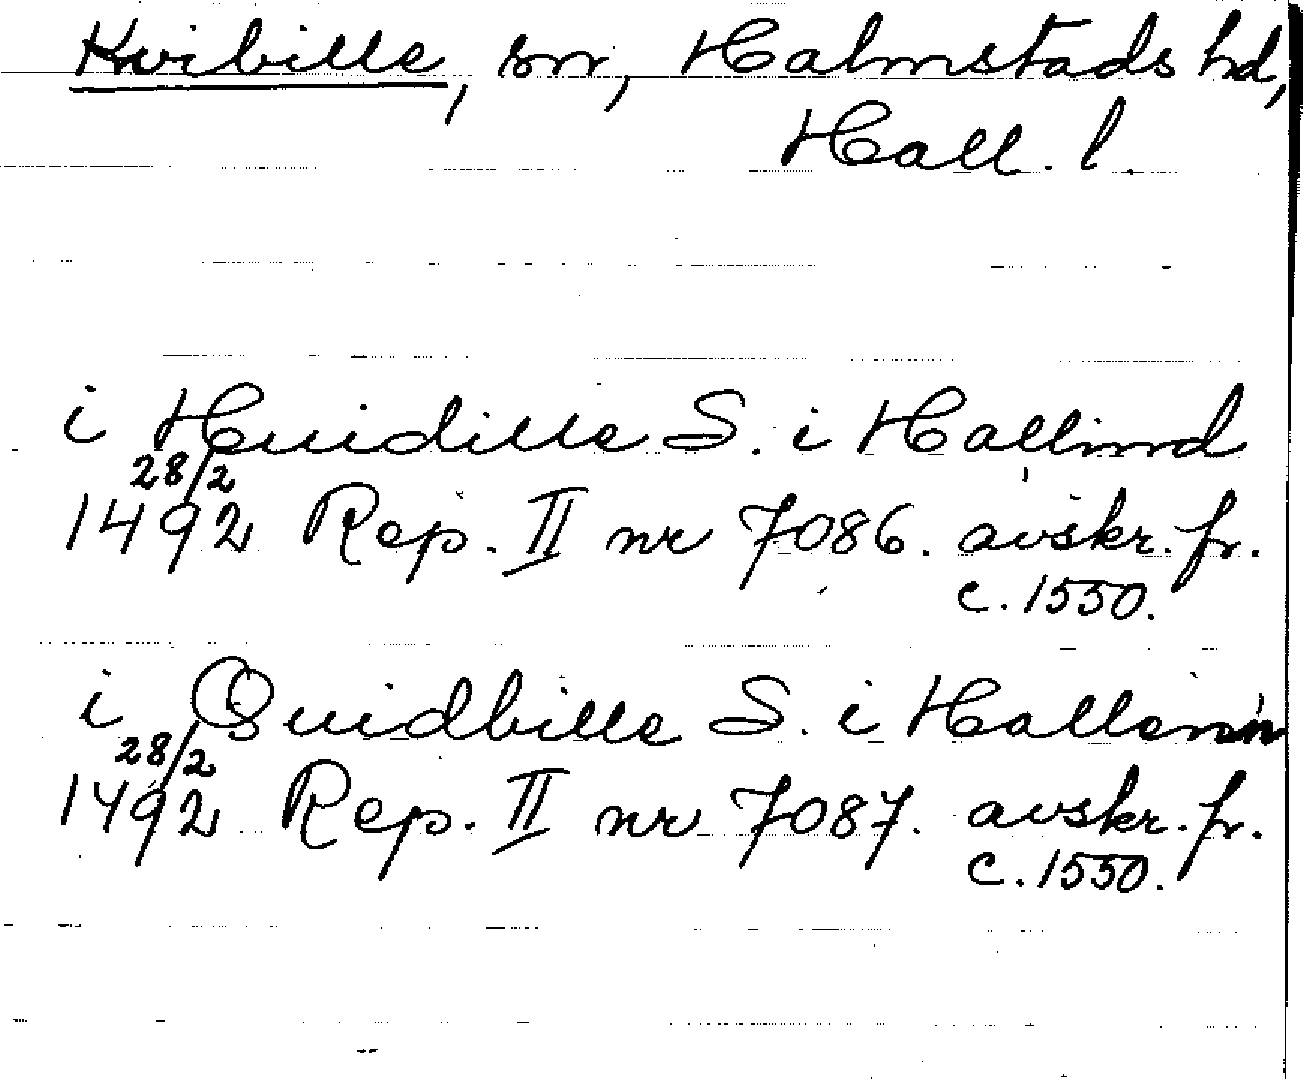 Kvibille, sn, Halmstads hd,
Hall. l.
i Huidille S. i Hallind
28/2
1492 Rep. II nr 7086. avskr. fr.
c. 1550.
i Quidbille S. i
28/2
1492 Rep. II nr 7087. avskr. fr.
c. 1550.